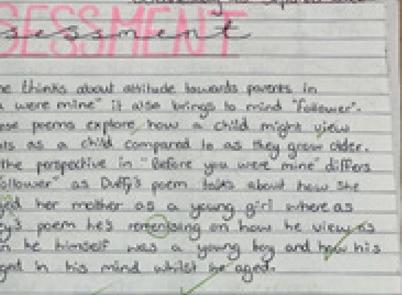 SESSMENT
sessment
he thinks about attitude towards parents in
were mine" it also brings to mind "follower".
poems explore how a child might view
as a child compared to as they grow older.
the perspective in "Before you were mine" differs
ollower" as Duffy's poem talks about how she
her mother as a young girl where as
ey's poem he's remenising on how he view as
n he himself was a young boy and how his
in his mind whilst he aged.